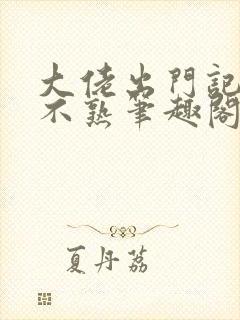 大佬出門記
不熟筆趣閣
夏丹荔